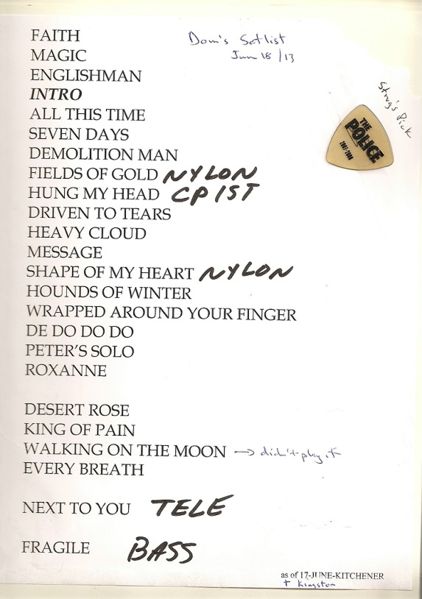 FAITH
Dom's Setlist
MAGIC
Jun 18/13
ENGLISHMAN
INTRO
Sting's Pick
ALL THIS TIME
THE
POLICE
2007-2008
SEVEN DAYS
DEMOLITION MAN
FIELDS OF GOLD NYLON
HUNG MY HEAD CP 1ST
DRIVEN TO TEARS
HEAVY CLOUD
MESSAGE
SHAPE OF MY HEART NYLON
HOUNDS OF WINTER
WRAPPED AROUND YOUR FINGER
DE DO DO DO
PETER'S SOLO
ROXANNE
DESERT ROSE
KING OF PAIN
WALKING ON THE MOON → didn't play it
EVERY BREATH
NEXT TO YOU TELE
FRAGILE BASS
as of 17-JUNE-KITCHENER
+ Kingston